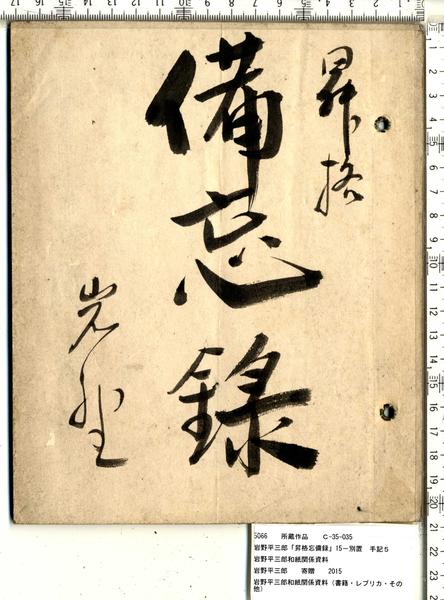 昇格
備忘録
岩野
5066 所蔵作品 C-35-035
岩野平三郎「昇格忘備録」15-別置 手記5
岩野平三郎和紙関係資料
岩野平三郎 寄贈 2015
岩野平三郎和紙関係資料(書籍・レプリカ・その
他)